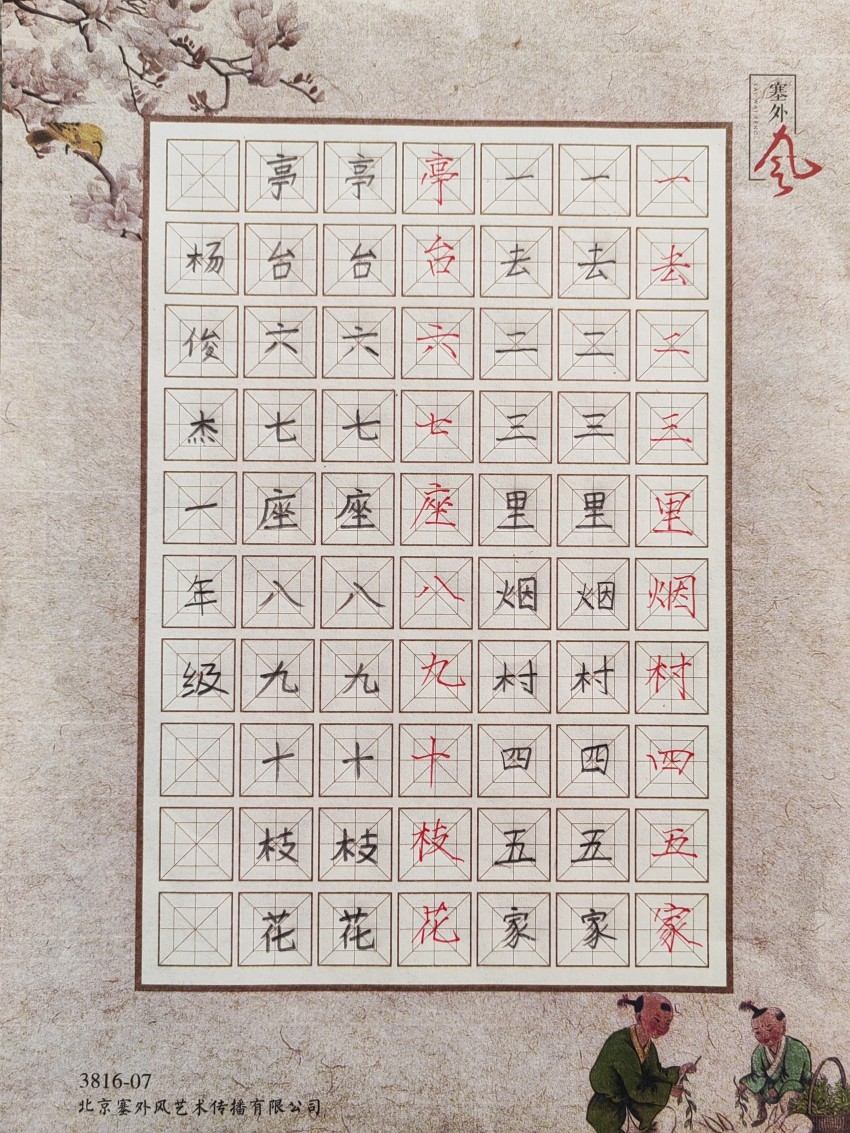 塞外风
一去二三里烟村四五家
一去二三里烟村四五家
一去二三里烟村四五家
亭台六七座八九十枝花
亭台六七座八九十枝花
亭台六七座八九十枝花
杨俊杰一年级
3816-07
北京塞外风艺术传播有限公司